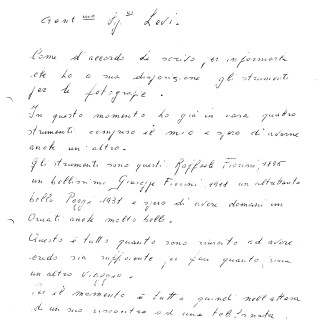 Gent.mo Sig. Levi.
Come d'accordo le scrivo, per informarla
che ho a sua disposizione gli strumenti
per le fotografie.
In questo momento ho già in casa quattro
strumenti compreso il mio e spero di averne
anche un altro.
Gli strumenti sono questi Raffaele Fiorini, 1895
un bellissimo Giuseppe Fiorini, 1911 un altrettanto
bello Poggi 1931 e spero di avere domani un
Ornati anche molto bello.
Questo è tutto quanto sono riuscito ad avere
credo sia sufficiente per fare quanto prima
un altro viaggio.
Per il momento è tutto quindi nell'attesa
di un suo riscontro od una telefonata.